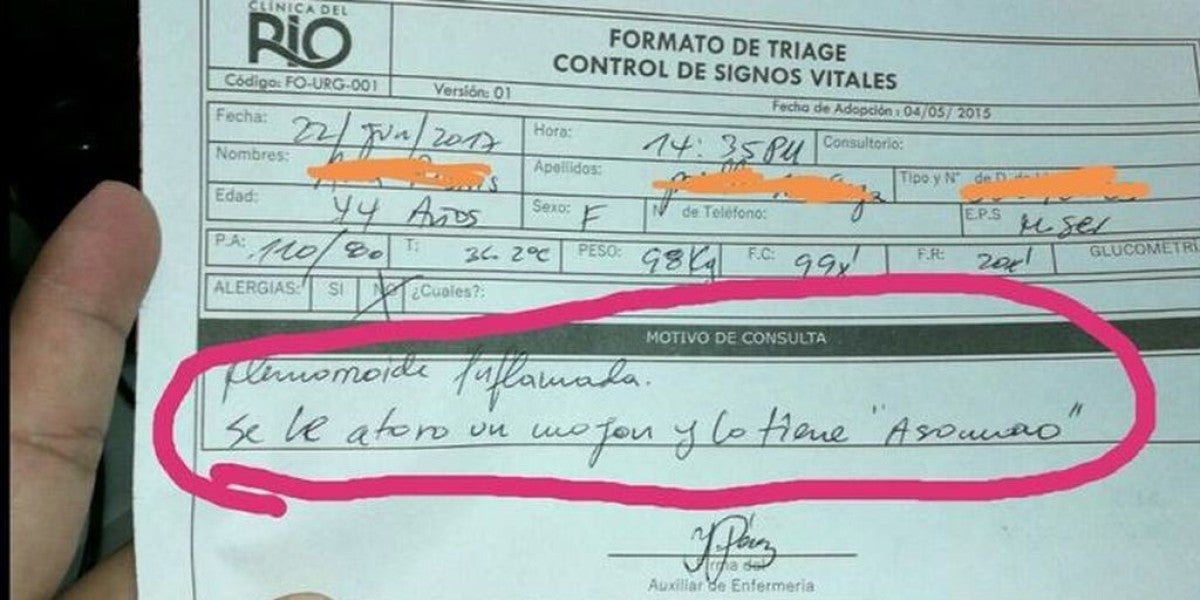 CLÍNICA DEL
RIO
FORMATO DE TRIAGE
CONTROL DE SIGNOS VITALES
Código: FO-URG-001
Versión: 01
Fecha de Adopción: 04/05/ 2015
Fecha: 22/Jun/2017
Hora: 14:35PM
Consultorio:
Nombres:
Apellidos:
Tipo y N° de D
Edad: 44 Años
Sexo: F
N° de Teléfono:
E.P.S
P.A: 110/80
T: 36.2°C
PESO: 98Kg
F.C: 99x'
F.R: 20x'
GLUCOMETRI
ALERGIAS:
SI
NO
¿Cuales?:
MOTIVO DE CONSULTA
Hemorroide Inflamada.
Se le atoro un mojon y lo tiene "Asomao"
Y Pérez
Firma del
Auxiliar de Enfermeria